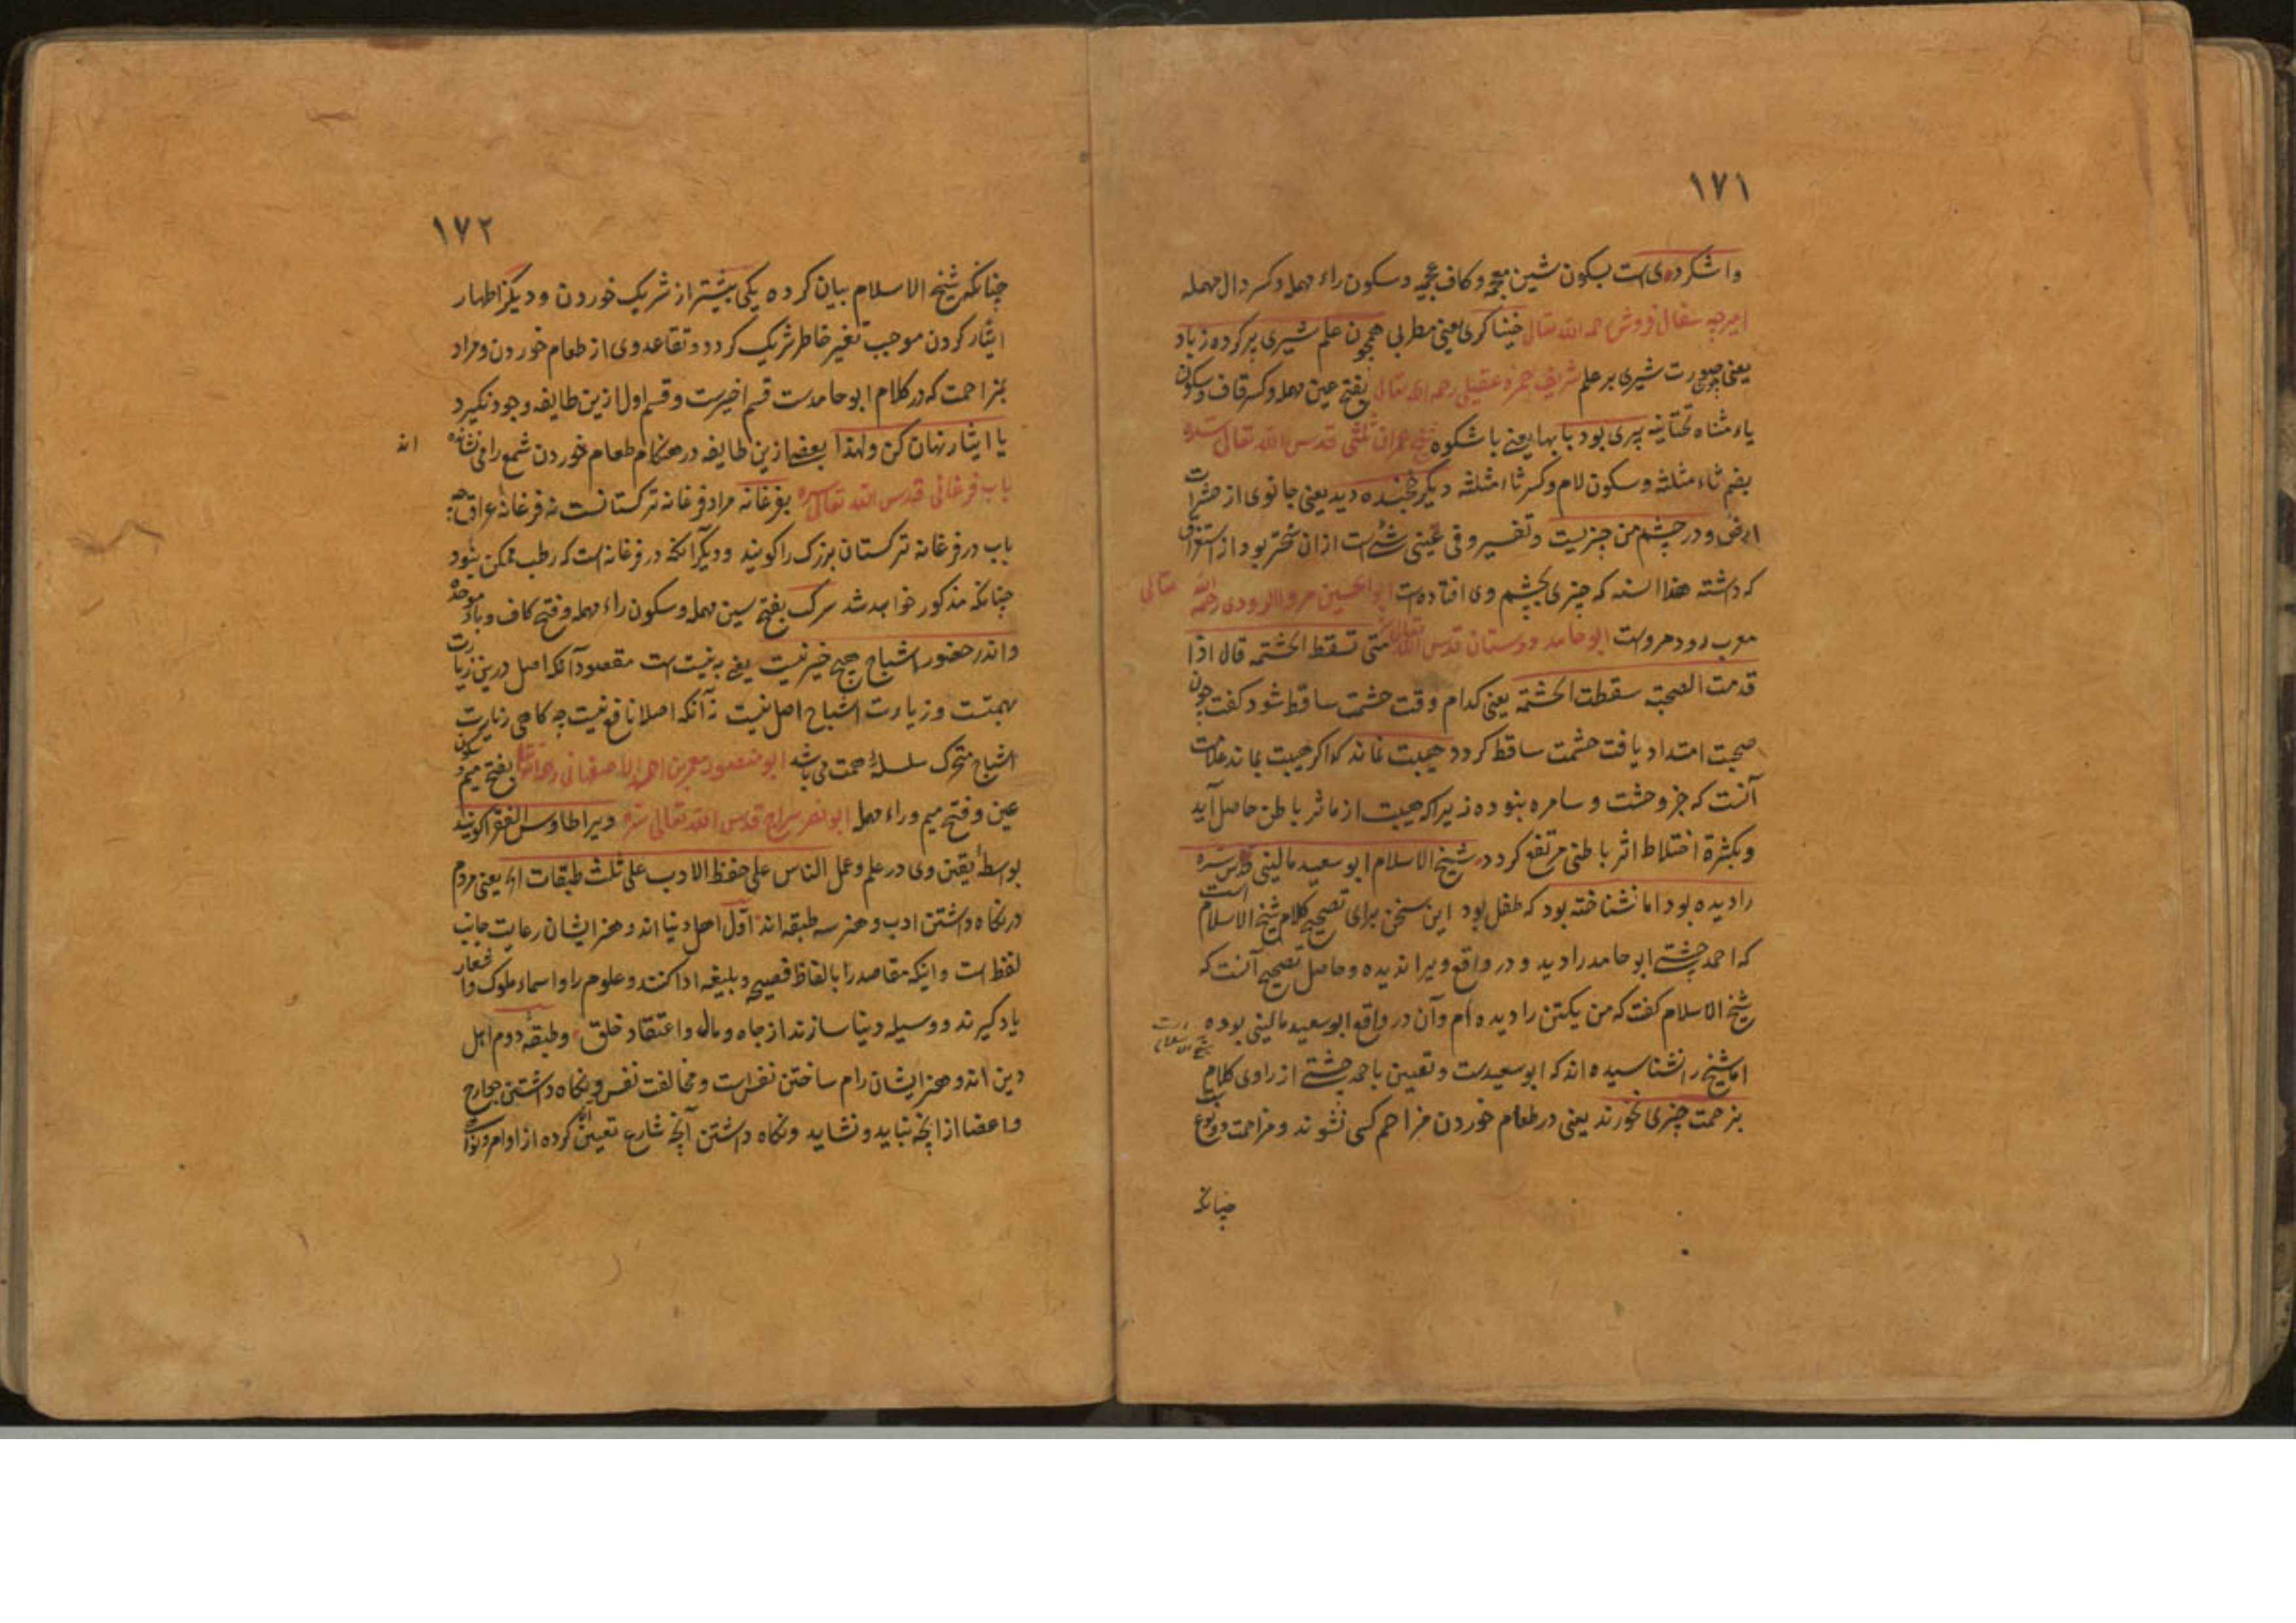 ۱۷۱
واشکردی است بسکون شین معجمه و کاف عجمیه و سکون راء مهمله و کسر دال مهمله
امیرچه سفال فروش رحمه الله تعالی خنیاکری یعنی مطربی همچون علم شیری پر کرده زباد
یعنی صورت شیری بر علم شریف حمزه عقیلی رحمه الله تعالی بفتح عین مهمله و کسر قاف و سکون
یاء مثناه تحتانیه پیری بود با بها یعنی با شکوه شیخ عمران ثلثی قدس الله تعالی سره
بضم ثاء مثلثه و سکون لام و کسر ثاء مثلثه دیگر خجنده دید یعنی جانوری از حشرات
ارض و در چشم من چیزیست و تفسیر وفی عینی شئ است از ان سختر بود از استغراق
که داشته هذا السنه که چیزی بچشم وی افتاده است ابو الحسین مروالرودی رحمه الله تعالی
معرب رود مروست ابو حامد دوستان قدس الله تعالی سره متی تسقط الحشمة قال اذا
قدمت الصحبة سقطت الحشمة یعنی کدام وقت حشمت ساقط شود کفت چون
صحبت امتداد یافت حشمت ساقط کردد هیبت نماند که اکر هیبت بماند علامت
آنست که جز وحشت و سامره نبوده زیرا که هیبت از ماثر باطن حاصل آید
و بکثرة اختلاط اثر باطنی مرتفع کردد شیخ الاسلام ابو سعید مالینی قدس سره
را دیده بود اما نشناخته بود که طفل بود این سخن برای تصحیح کلام شیخ الاسلام است
که احمد چشتی ابو حامد را دید و در واقع ویرا ندیده و حاصل تصحیح آنست که
شیخ الاسلام کفت که من یکتن را دیده ام و آن در واقع ابو سعید مالینی بوده است
اما شیخ را نشناسیده اند که ابو سعیدست و تعیین باحمد چشتی از راوی کلام
بزحمت چیزی نخورند یعنی در طعام خوردن مزاحم کسی نشوند و مزاحمت دو نوع است
چنانکه
۱۷۲
چنانکه شیخ الاسلام بیان کرده یکی بیشتر از شریک خوردن و دیکر اظهار
ایثار کردن موجب تغیر خاطر شریک کردد و تقاعد وی از طعام خوردن و مراد
بمزاحمت که در کلام ابو حامدست قسم اخیرست و قسم اول ازین طایفه وجود نکیرد
یا ایثار نهان کن و لهذا بعضی ازین طایفه در هنکام طعام خوردن شمع را می نشانده اند
باب فرغانی قدس الله تعالی سره بفرغانه مراد فرغانه ترکستانست نه فرغانه عراق چه
باب در فرغانه ترکستان بزرک را کویند و دیکر آنکه در فرغانه است که رطب ممکن نبود
چنانکه مذکور خواهد شد سرکب بفتح سین مهمله و سکون راء مهمله و فتح کاف و باء موحده
و اندر حضور اشباح هیچ خیر نیست یعنی به نیست است مقصود آنکه اصل درین زیارت
بهمتست و زیارت اشباح اصل نیست نه آنکه اصلا نافع نیست چه کاهی زیارت
اشباح متحرک سلسلهٔ همت می باشد ابو منصور معمر بن احمد الاصفهانی رحمه الله تعالی بفتح میم و سکون
عین و فتح میم و راء مهمله ابو نصر سراج قدس الله تعالی سره ویرا طاوس الفقرا کویند
بواسطهٔ یقین وی در علم و عمل الناس علی حفظ الادب علی ثلث طبقات الخ یعنی مردم
در نکاه داشتن ادب و هنر سه طبقه اند اول اهل دنیا اند و هنر ایشان رعایت جانب
لفظ است و اینکه مقاصد را بالفاظ فصیحه و بلیغه ادا کنند و علوم را و اسماء ملوک و اشعار
یاد کیرند و وسیله دنیا سازند از جاه و مال و اعتقاد خلق و طبقه دوم اهل
دین اند و هنر ایشان رام ساختن نفس است و مخالفت نفس و نکاه داشتن جوارح
و اعضا از انچه نباید و نشاید و نکاه داشتن آنچه شارع تعیین کرده از اوامر و نواهی